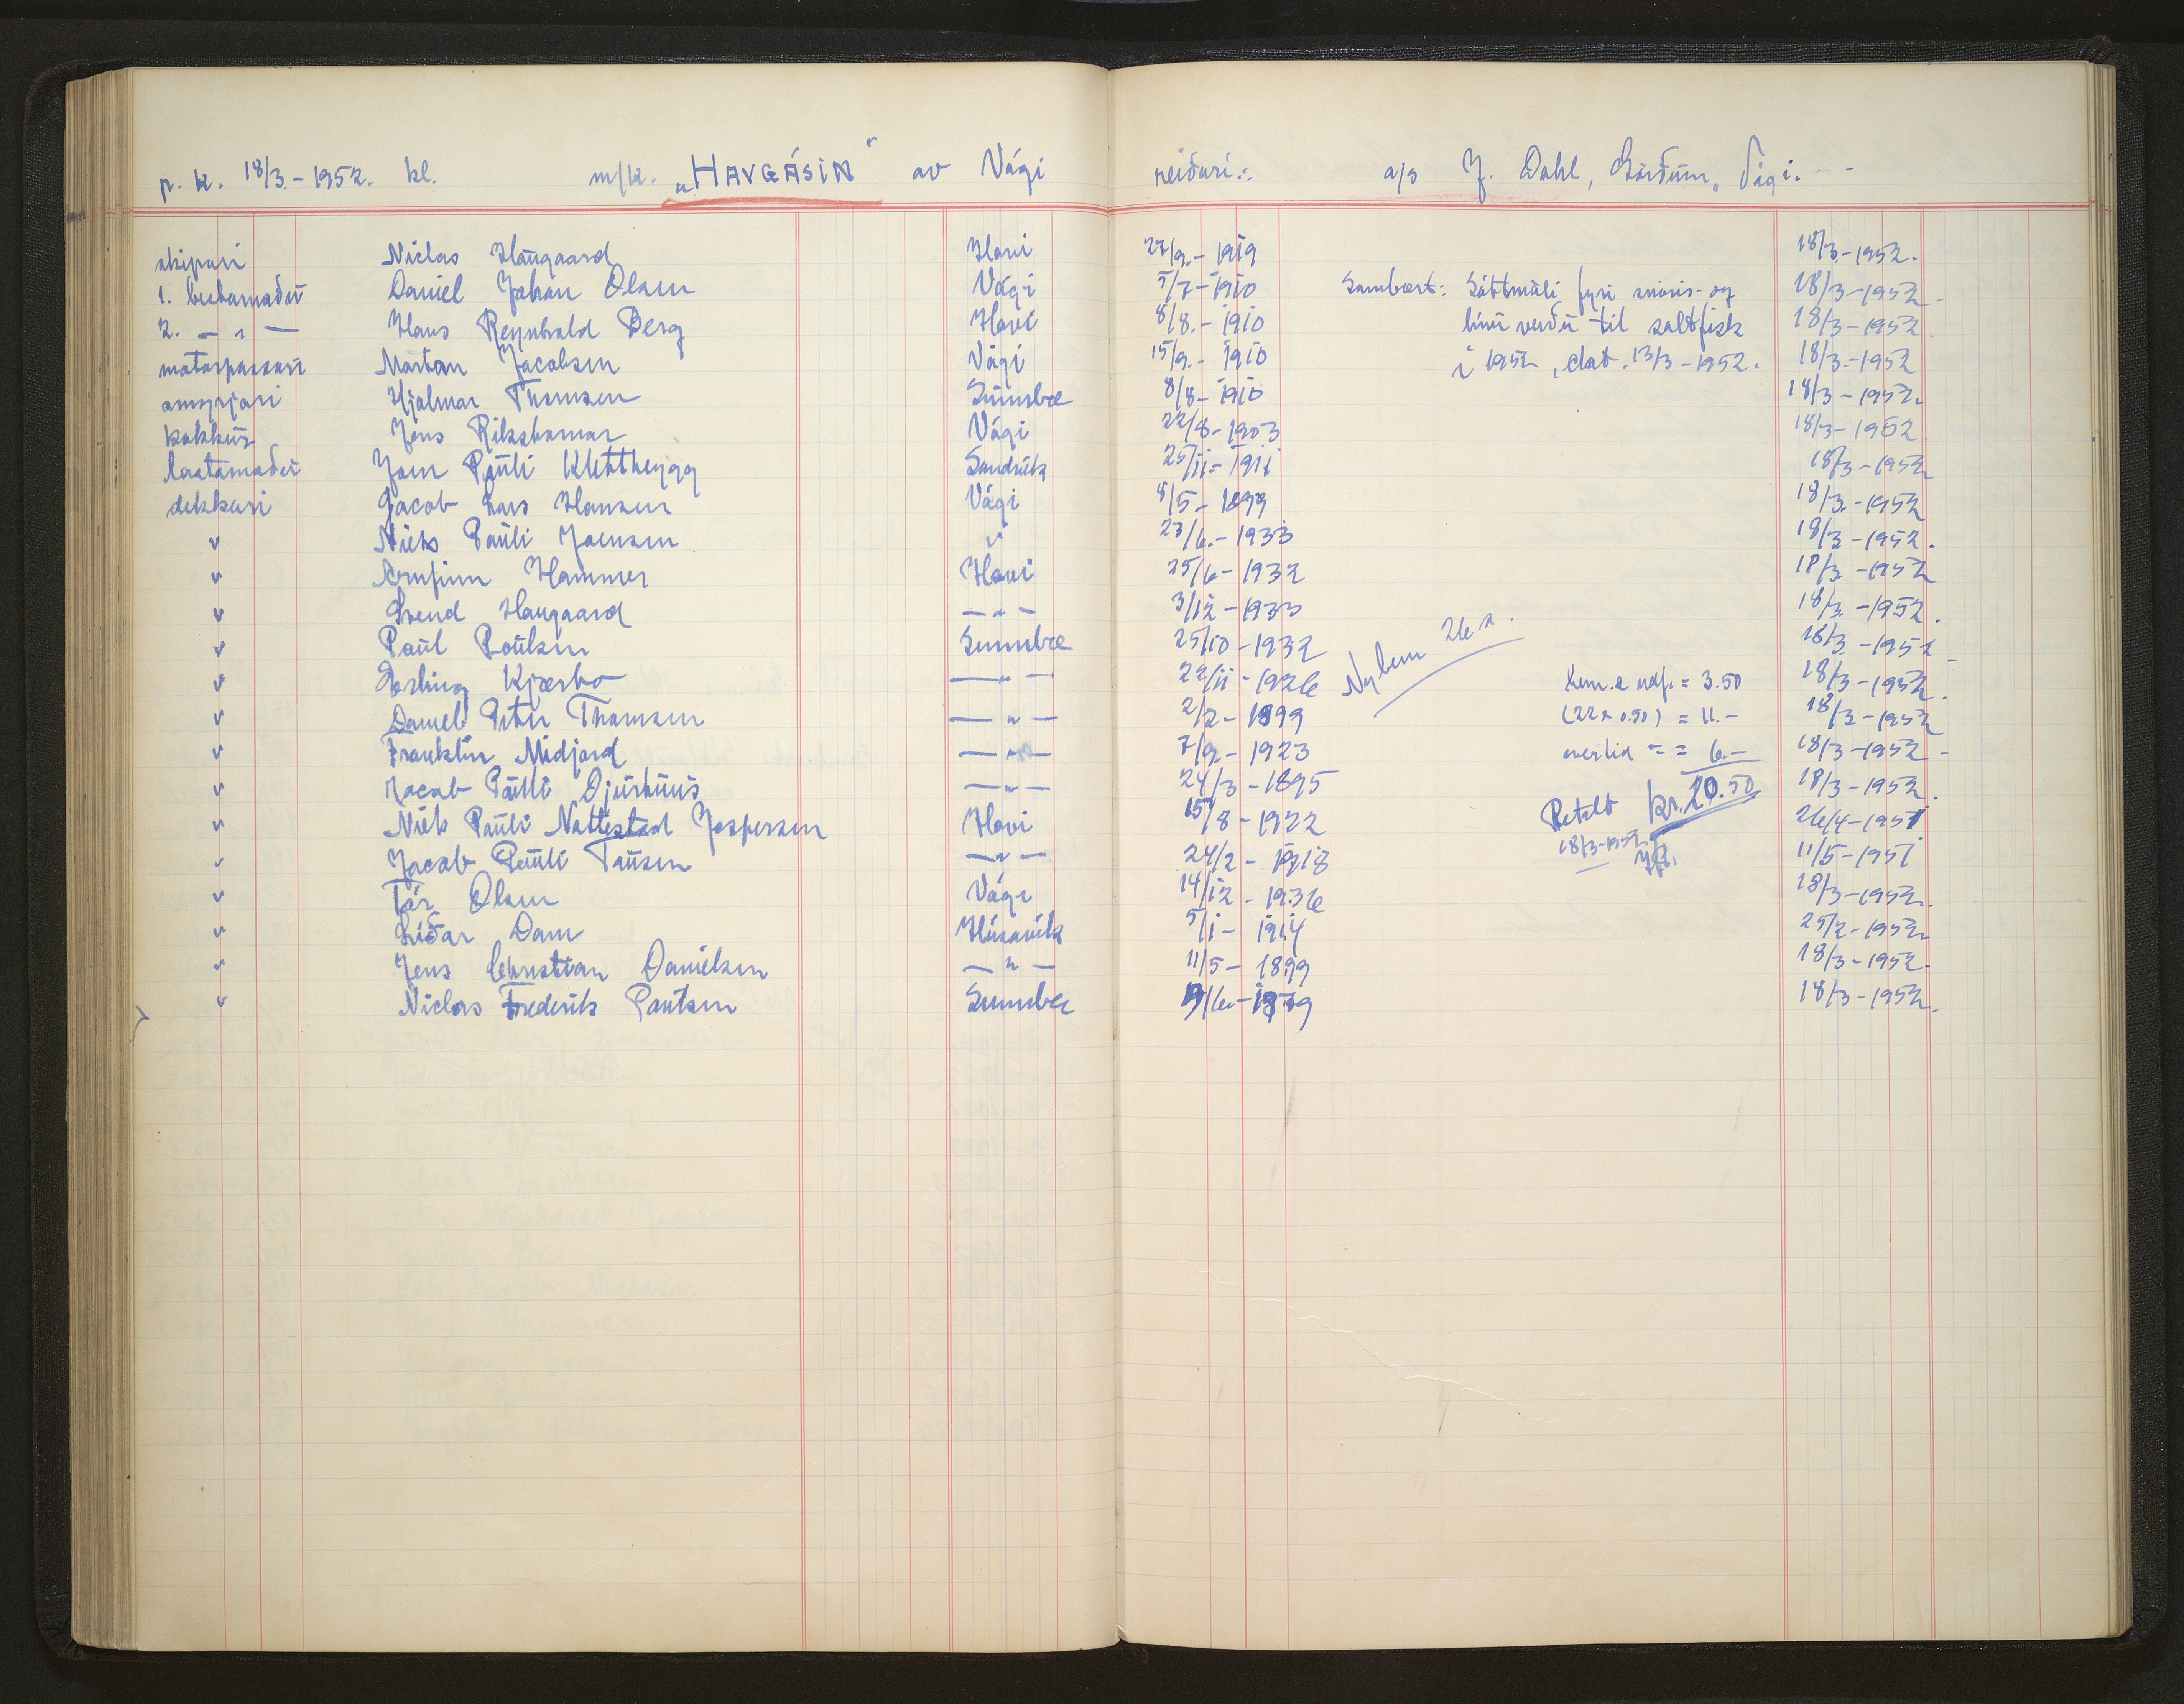 p. k. 18/3.-1952. kl. m/k. „HAVGÁSIN“ av Vági reiðari:. a/s J. Dahl, Vági. - -
skipari Niclas Haugaard Hovi 27/9.- 1919 18/3.-1952.
1. bestamaður Daniel Johan Olsen Vági 5/7-1910 Sambært: Sáttmáli fyri snøris- og 18/3-1952.
2. — " — Hans Reynbald Berg Hovi 8/8.- 1910 línuveiðu til saltfisk 18/3-1952.
motorpassari Mortan Jacobsen Vági 15/9.- 1910 í 1952, dat. 13/3-1952. 18/3.-1952
smyrjari Hjalmar Thomsen Sumbee 8/8- 1910 18/3-1952.
kokkur Jens Vági 22/8-1903 18/3-1952
lastamaður Joen Pauli Klettheygg Sandvík 25/11- 1911 18/3-1952
dekkari Jacob Lars Hansen Vági 8/5- 1899 18/3.-1952
" Niels Pauli Joensen " 23/6.-1933 18/3-1952.
" Arnfinn Hammer Hovi 25/6-1932 18/3-1952
" Svend Haugaard — " — 3/12-1933 18/3-1952.
" Paul Poulsen Sumbee 25/10-1932 Nýbem 26 x. 18/3-1952
" Erling Kjærbo — " — 22/11-1926 3.50 18/3-1952.
" Daniel Peter Thomsen — " — 2/2- 1899 (22 x 0.50) = 11.- 18/3-1952
" Franklin Midjord — " — 7/9- 1923 overtid - = 6.- 18/3-1952 -
" Jacob Pauli Djurhuus — " — 24/3-1895 Betalt kr. 20.50 18/3-1952.
" Niels Pauli Nattestad Jespersen Hovi 15/8-1922 18/3-1952 26/4-1951
" Jacob Pauli Tausen — " — 24/2- 1918 11/5-1951
" Tór Olsen Vági 14/12-1936 18/3-1952.
" Liðar Dam Húsavík 5/1- 1914 25/2-1952
" Jens Christian Danielsen — " — 11/5- 1899 18/3-1952.
" Niclas Frederik Poulsen Sumbee 18/3-1952.